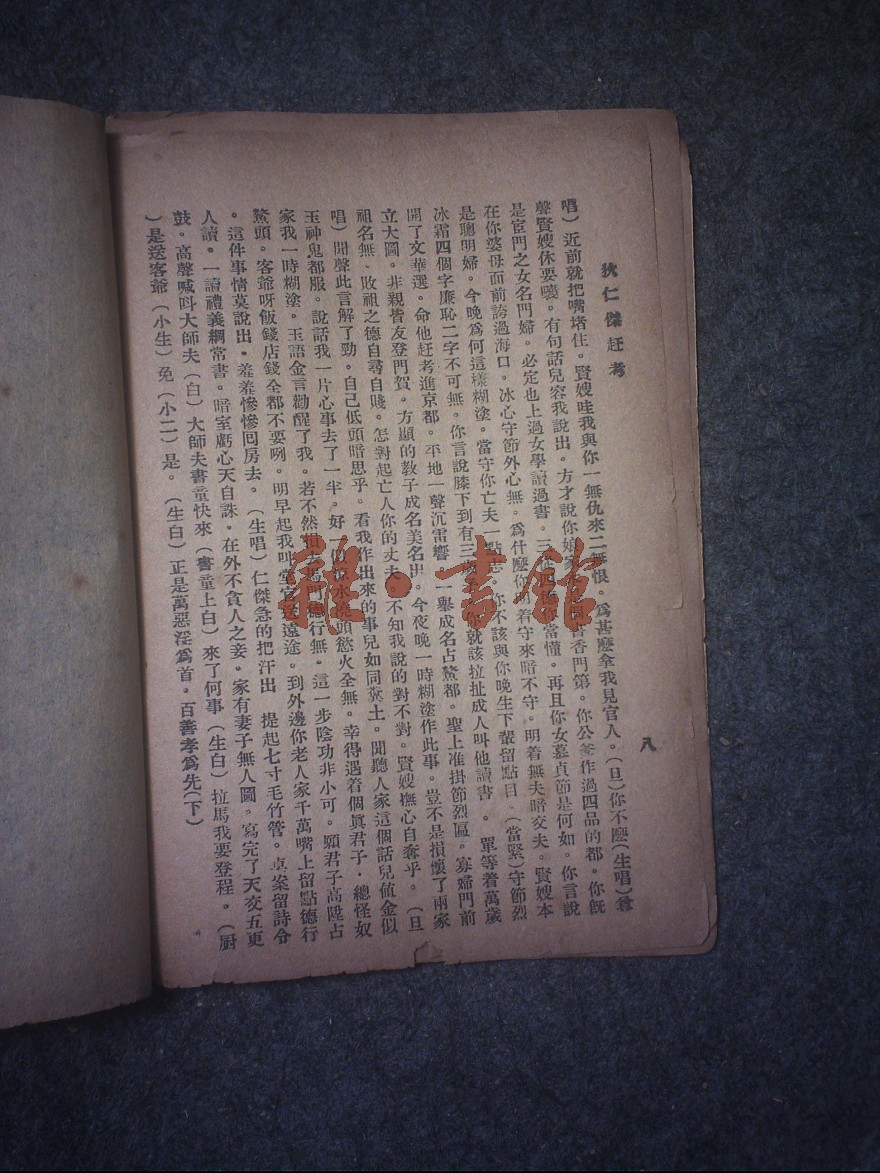 狄仁傑赶考
八
唱）近前就把嘴堵住。賢嫂哇我與你一無仇來二無恨。為甚麼拿我見官人。（旦）你不應（生唱）尊
聲賢嫂休要嚷。有句話兒容我說出。方才說你娘家 書香門第。你公爹作過四品的都。你既
是宦門之女名門婦。必定也上過女學讀過書。三從四德你當懂。再且你女慕貞節是何如。你言說
在你婆母面前誇過海口。冰心守節外心無。為什麼你 若守來暗不守。明着無夫暗交夫。賢嫂本
是聰明婦。今晚為何這樣糊塗。當守你亡夫一點志 你不該與你晚生下輩留點目。（當緊）守節烈
冰霜四個字廉恥二字不可無。你言說膝下到有三歲子 你就該拉扯成人叫他讀書 。單等着萬歲
開了文華選。命他赶考進京都。平地一聲沉雷響 一舉成名占鰲都。聖上准掛節烈匾。寡婦門前
立大圖。非親皆友登門賀。方顯的教子成名美名出 今夜晚一時糊塗作此事。豈不是損懷了兩家
祖名無、敗祖之德自尋自賤。怎對起亡人你的丈夫。不知我說的對不對。賢嫂撫心自奪乎。（旦
唱）聞聲此言解了勁。自己低頭暗思乎。看我作出來的事兒如同糞土。聞聽人家這個話兒値金似
玉神鬼都服。說話我一片心事去了一半。好 似涼水澆頭慾火全無。幸得遇着個眞君子・總怪奴
家我一時糊塗。玉語金言勸醒了我。若不然損 德行無。這一步陰功非小可。願君子高陞占
鰲頭。客爺呀飯錢店錢全都不要咧。明早起我叫堂官送遠途。到外邊你老人家千萬嘴上留點德行
。這件事情莫說出・羞羞慘慘囘房去。（生唱）仁傑急的把汗出 提起七寸毛竹管。卓案留詩令
人讀。一讀禮義綱常書。暗室虧心天自誅。在外不貪人之妾。家有妻子無人圖。寫完了天交五更
鼓。高聲喊呌大師夫（白）大師夫書童快來（書童上白）來了何事（生白）拉馬我要登程。（厨
）是送客爺（小生）免（小二）是。（生白）正是萬惡淫為首。百善孝為先（下）
龍・書館